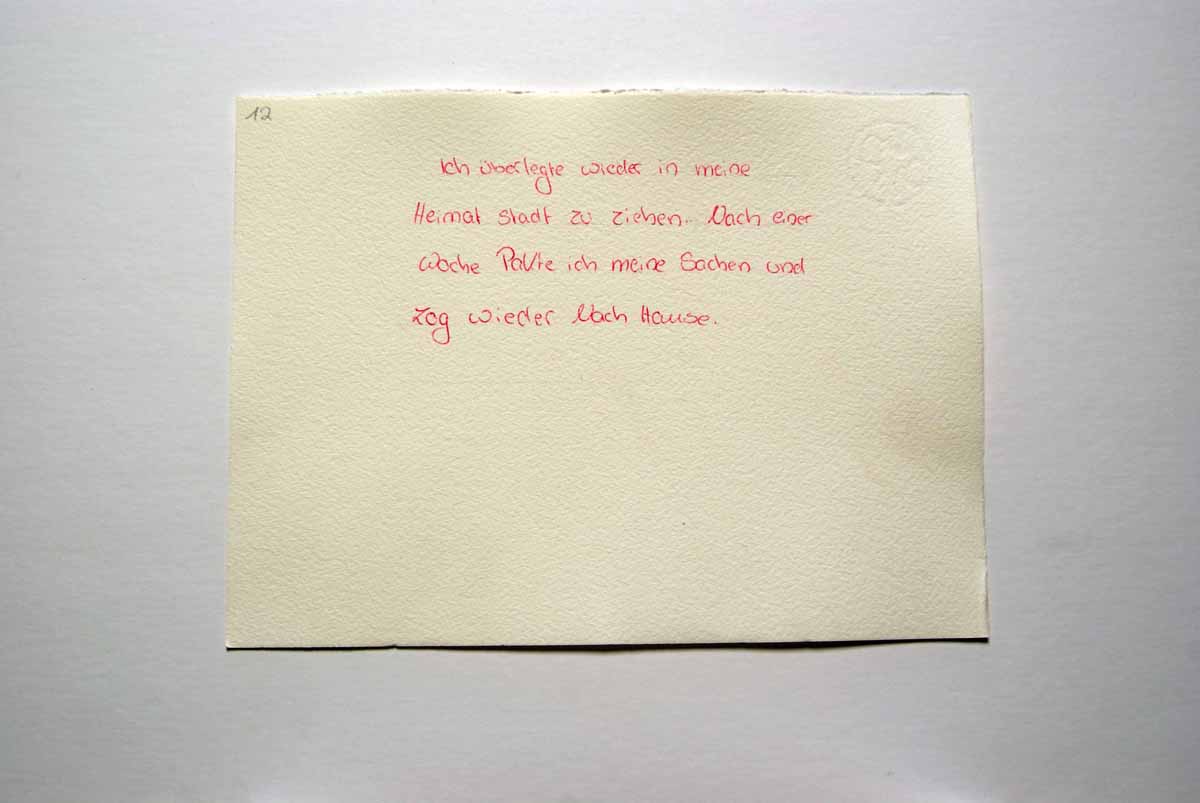 12
Ich überlegte wieder in meine
Heimat stadt zu ziehen. Nach einer
Woche Pakte ich meine Sachen und
Zog wieder Nach Hause.